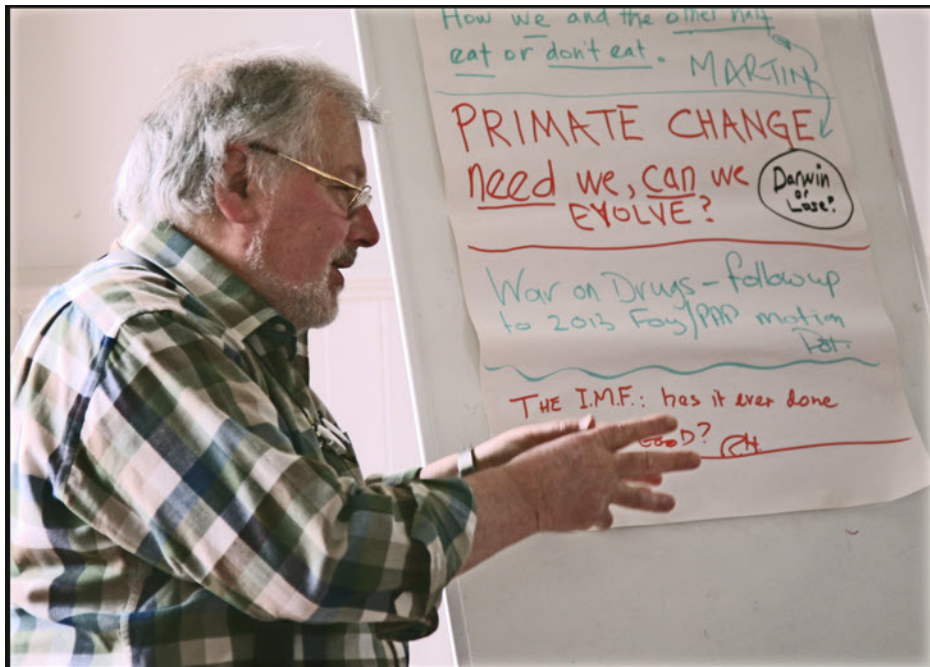 How we and the other half
eat or don't eat.
MARTIN
PRIMATE CHANGE
need we, can we
EVOLVE?
Darwin
or
Lose?
War on Drugs - followup
to 2013 Foy/PAP motion
Pat.
THE I.M.F.: has it ever done
GOOD? RH.